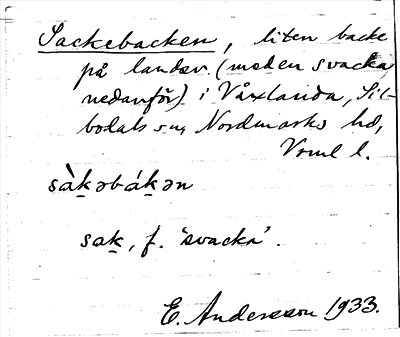 Sackebacken, liten backe
på landsv. (med en svacka
nedanför) i Våxlanda, Sil-
bodals sn, Nordmarks hd,
Vrml l.
sàk̲əbák̲ən
sak̲, f. 'svacka'.
E. Andersson 1933.